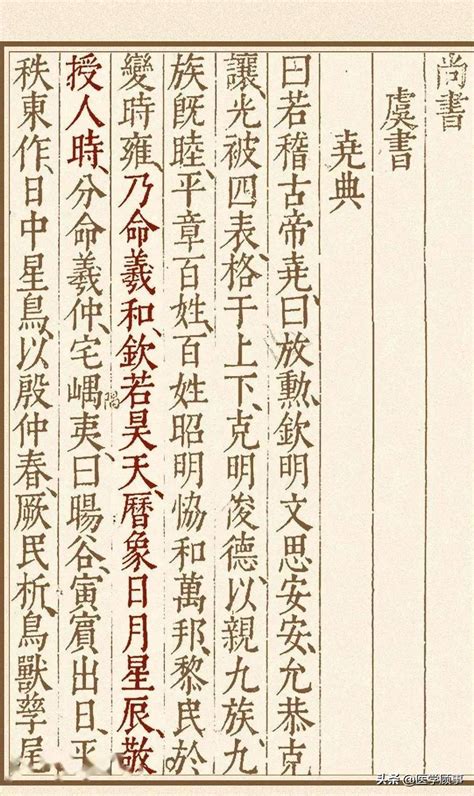 尚書
虞書
堯典
曰若稽古帝堯曰放勳、欽明文思安安、允恭克
讓、光被四表、格于上下、克明俊德、以親九族、九
族旣睦、平章百姓、百姓昭明、恊和萬邦、黎民於
變時雍、乃命羲和、欽若昊天、曆象日月星辰、敬
授人時、分命羲仲、宅嵎夷、曰暘谷、寅賓出日、平
隅
秩東作、日中星鳥、以殷仲春、厥民析、鳥獸孳尾
头条 @医学顾事